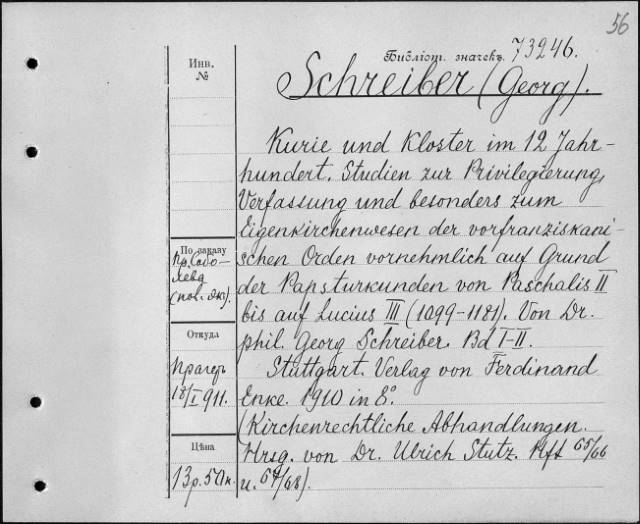 56
Библіот. значекъ. 73246.
Schreiber (Georg).
Kurie und Kloster im 12 Jahr-
hundert. Studien zur Privilegierung,
Verfassung und besonders zum
Eigenkirchenwesen der vorfranziskani-
schen Orden vornehmlich auf Grund
der Papsturkunden von Paschalis II
bis auf Lucius III (1099-1181). Von Dr.
phil. Georg Schreiber. Bd I-II.
Stuttgart. Verlag von Ferdinand
Enke. 1910 in 8°.
(Kirchenrechtliche Abhandlungen.
Hrsg. von Dr. Ulrich Stutz. Hft 65/66
u. 67/68).
Инв.
№
По заказу
пр. Собо-
лева
Откуда
Прагеръ
18/I 911.
Цѣна
13 р. 50 к.